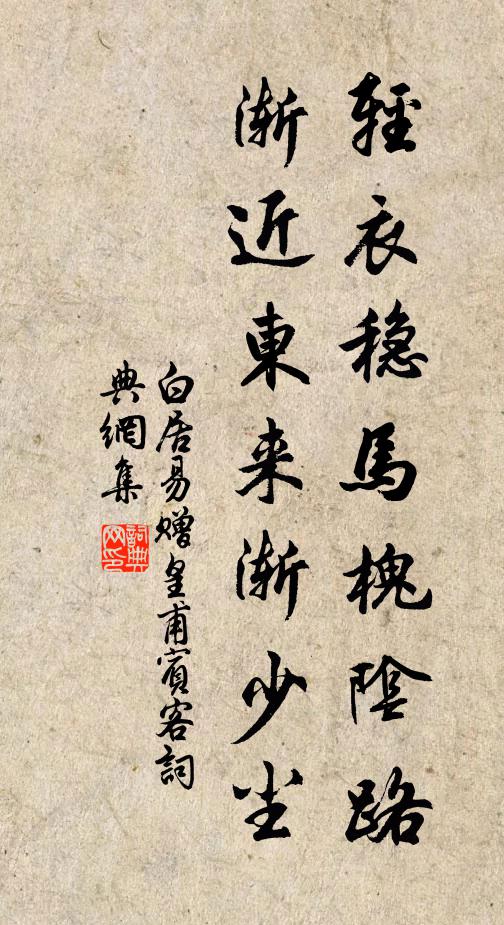 輕衣穩馬槐陰路
漸近東来漸少尘
白居易贈皇甫賓客詞
典網集
詞典网印